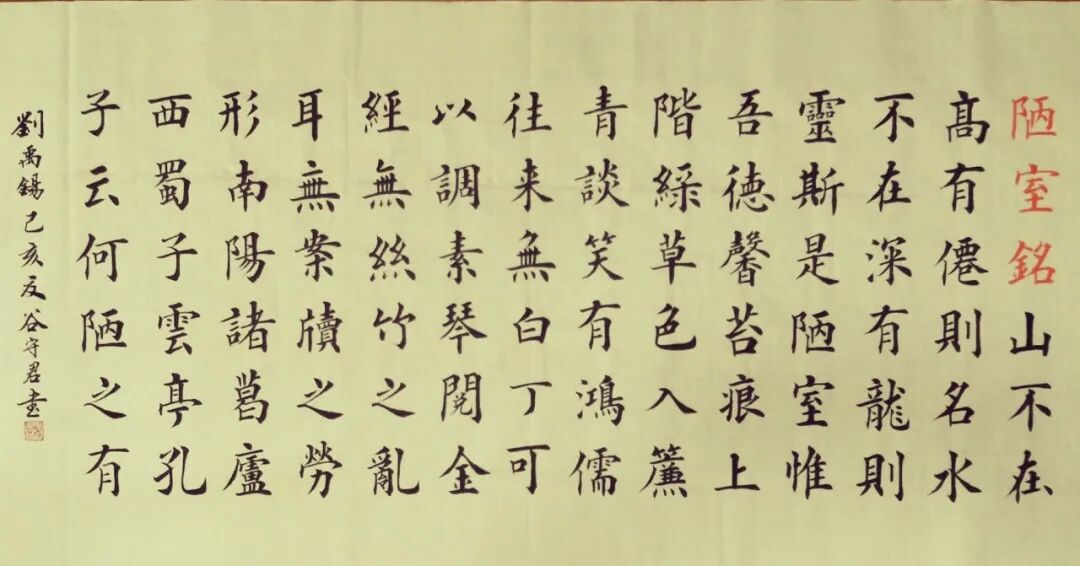 陋室銘山不在
髙有僊則名水
不在深有龍則
靈斯是陋室惟
吾徳馨苔痕上
階綠草色入簾
青談笑有鴻儒
往来無白丁可
以調素琴閱金
經無絲竹之亂
耳無案牘之勞
形南陽諸葛廬
西蜀子雲亭孔
子云何陋之有
劉禹錫己亥夏谷守君書